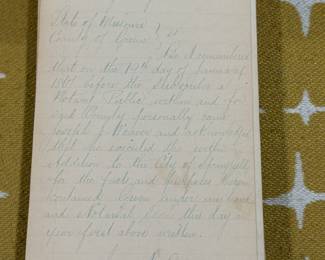 State of Missouri }
County of Greene } ss
Be it remembered
that on the 19th day of January
1867 before the subscriber a
Notary Public within and for
said County personally came
Joseph J Weaver and acknowledged
that he executed the within
Addition to the City of Springfield
for the facts and purposes therein
contained Given under my hand
and Notarial Seal this day
year first above written